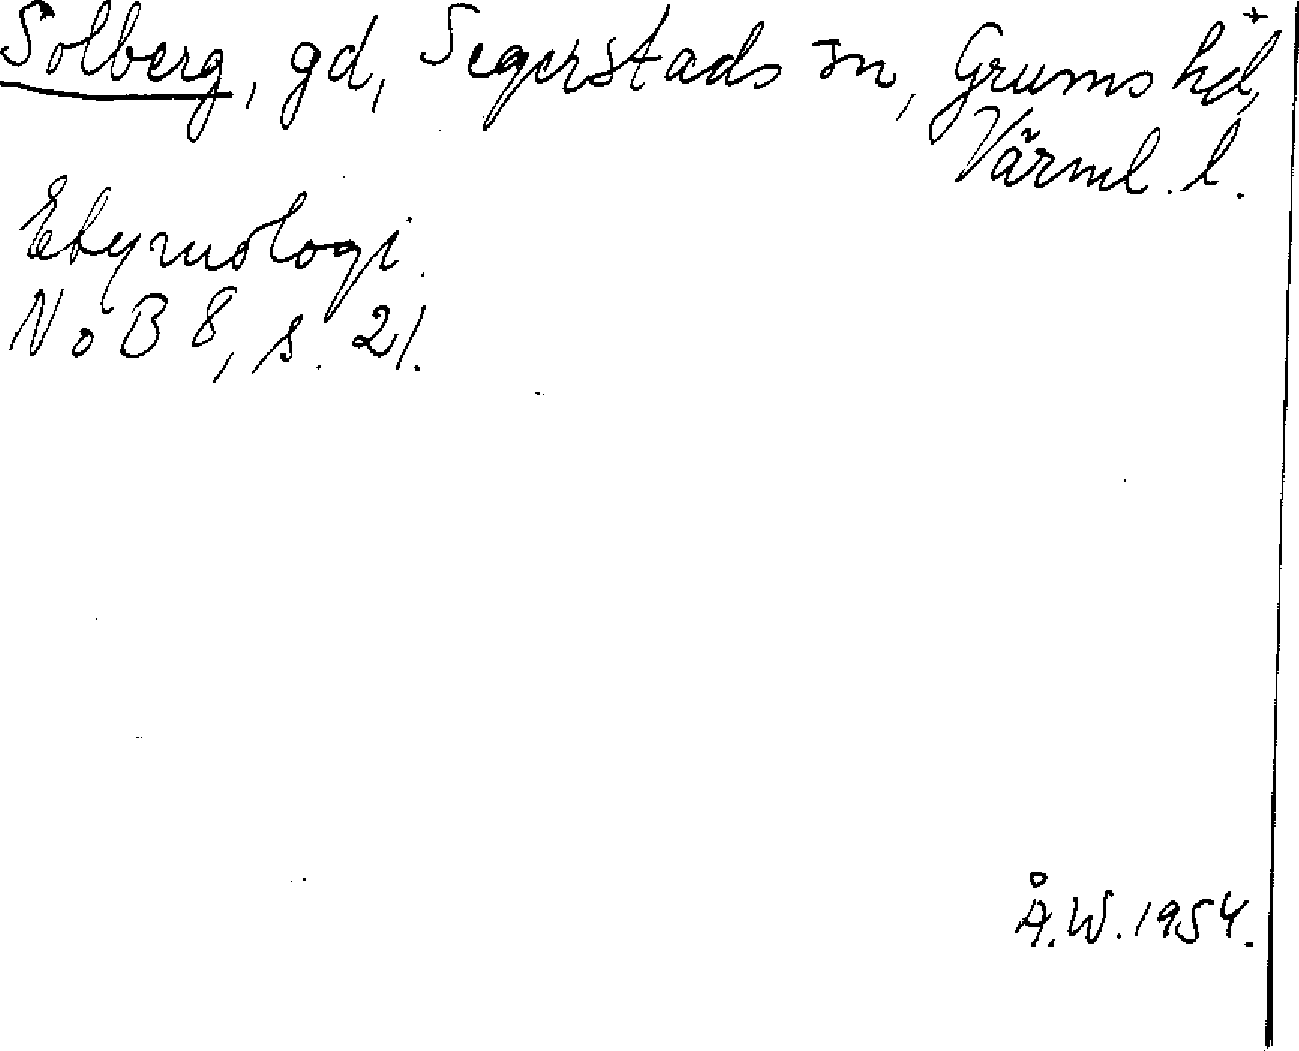 Solberg, gd, Segerstads sn, Grums hd,
Värml. l.
Etymologi.
NoB 8, s. 21.
Å.W. 1954.